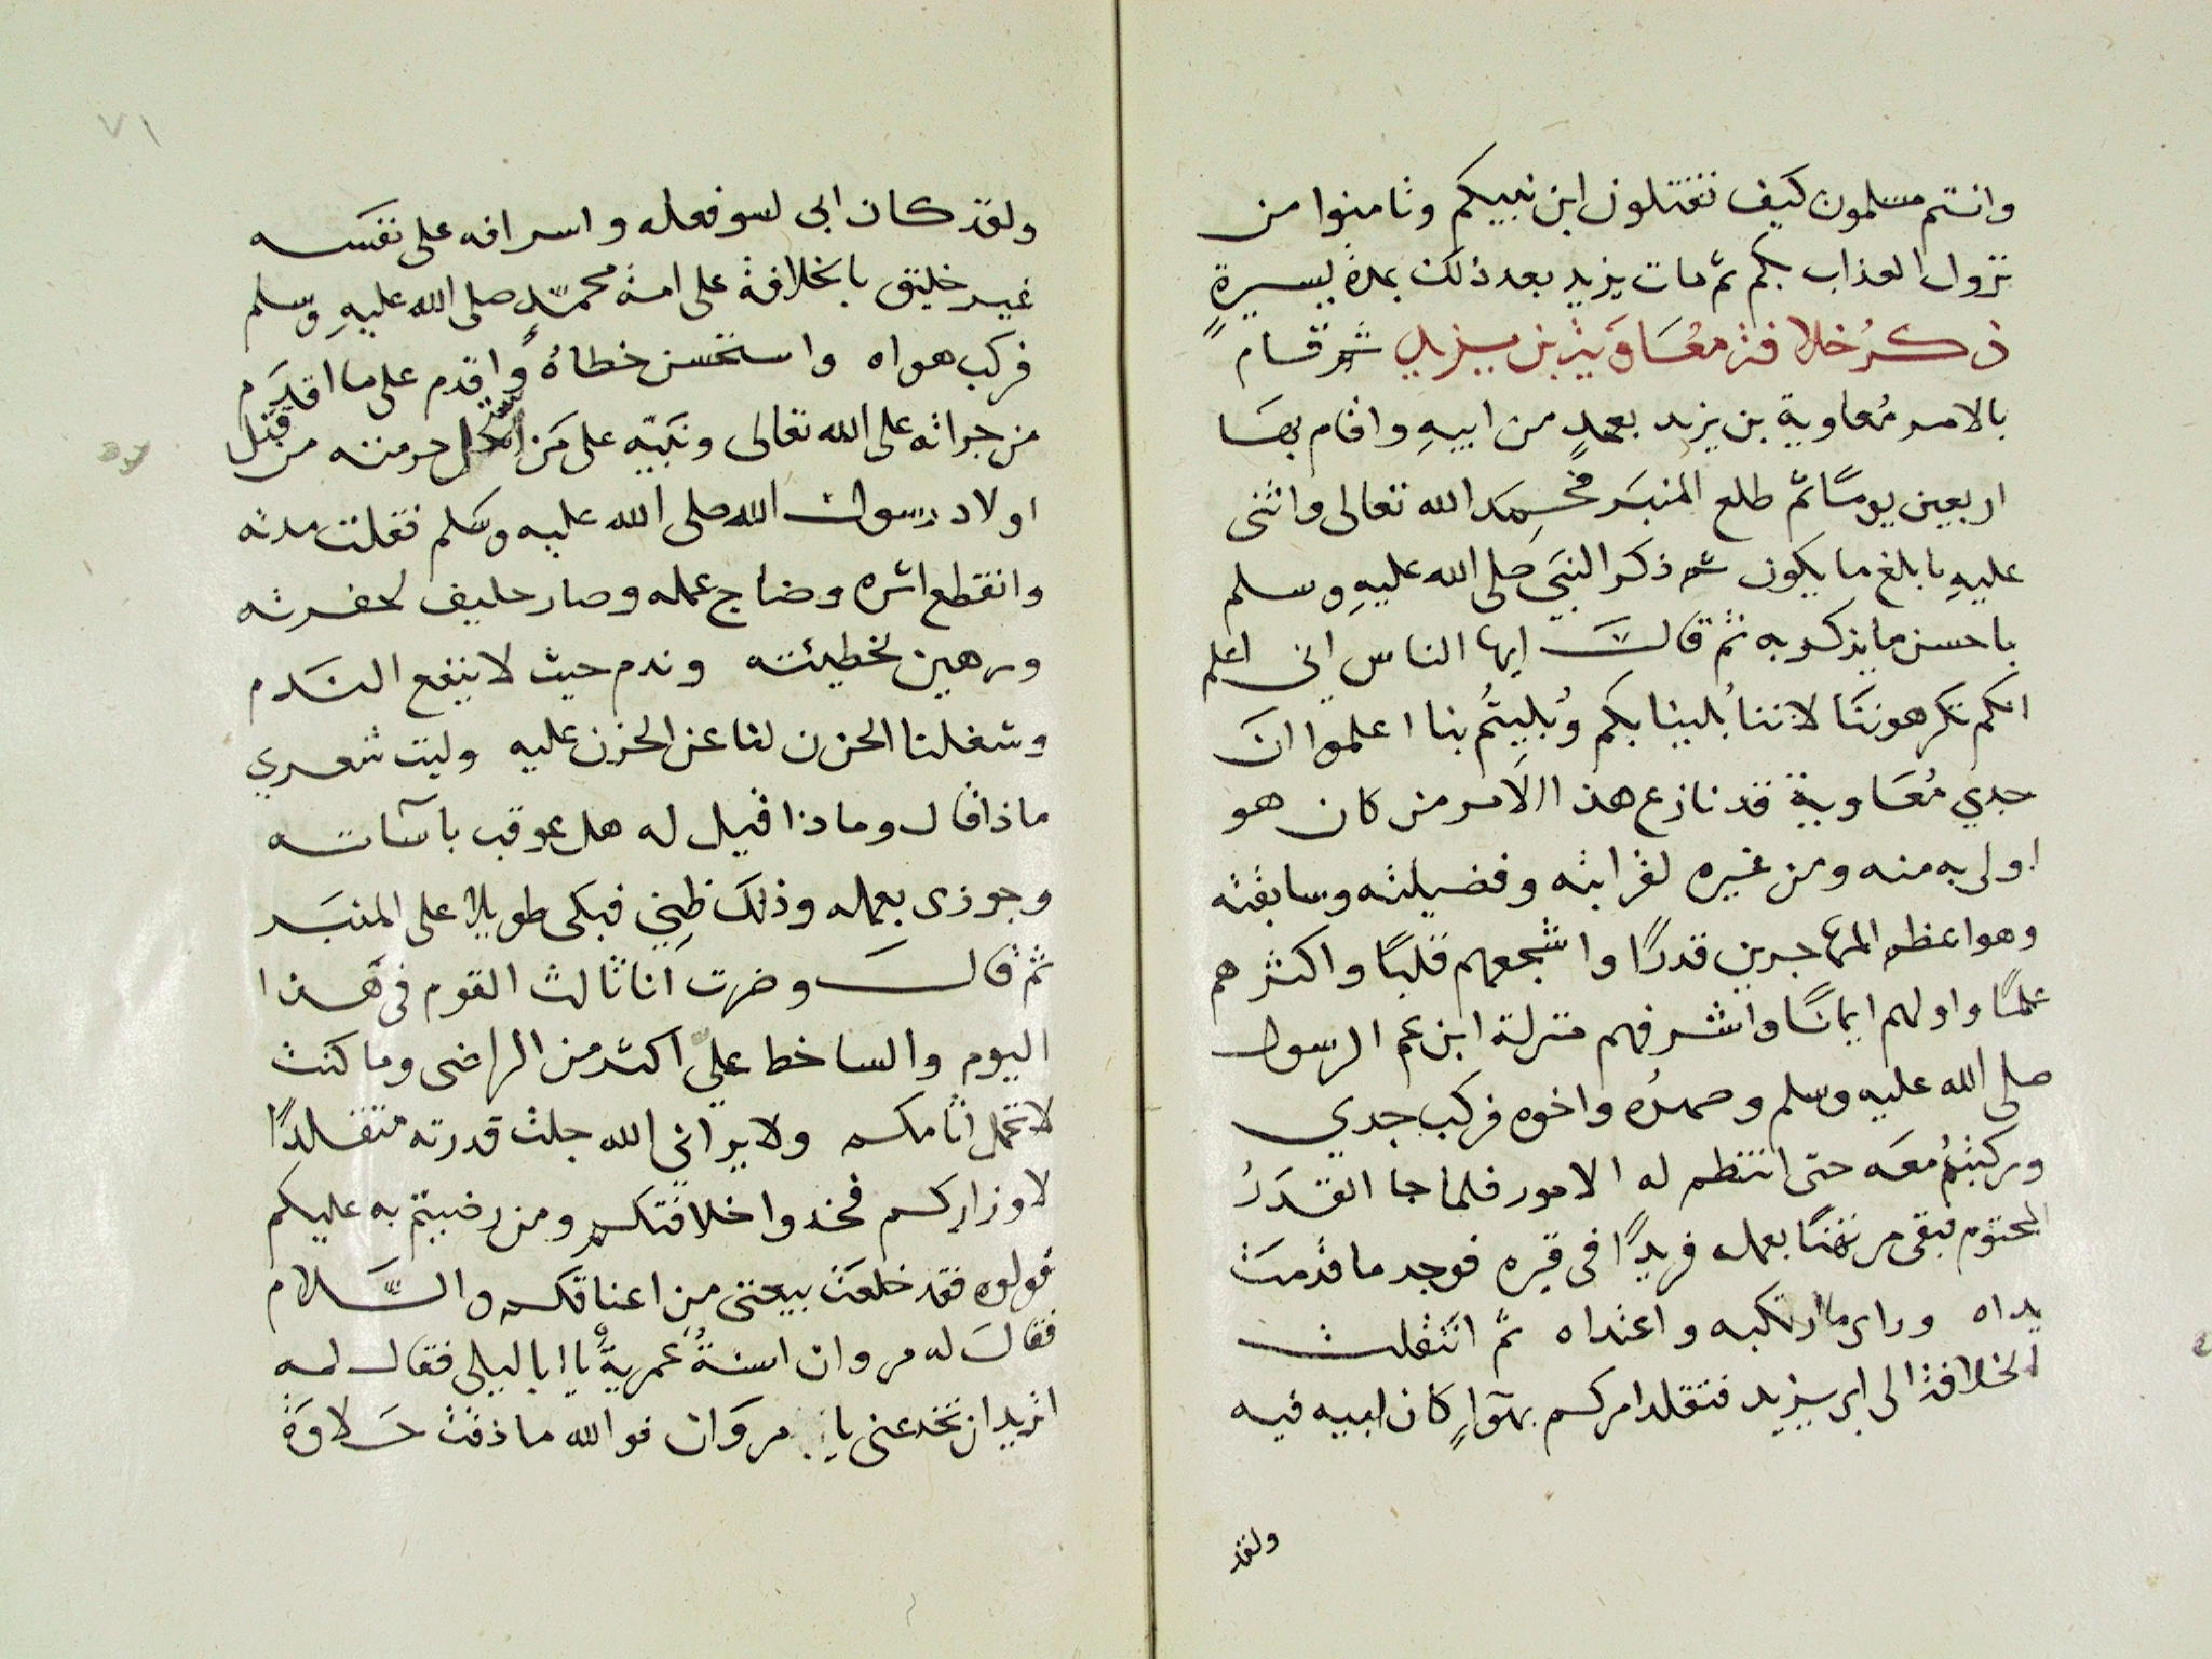 وانتم مسلمون كيف تقتلون ابن نبيكم وتامنوا من
نزول العذاب بكم ثم مات يزيد بعد ذلك بمدة يسيرةٍ
ذكرُ خلافة معُاويَة بن يزيد ثم قام
بالامر مُعاوية بن يزيد بعهدٍ من ابيهِ واقام بها
اربعين يومًا ثم طلع المنبَر فحَمِد الله تعالى واثنى
عليهِ بابلغ ما يكون ثم ذكر النبيَ صلى الله عليهِ وسلم
باحسن ما يذكر به ثم قال ايها الناس اني اعلم
انكم تكرهوننَا لاننا بُلينا بكم وُبُلِيتُم بنا اعلموا انَ
جدي مُعَاوية قد نازع هذا الامر من كان هو
اولى به منه ومن غيره لقرابته وفضيلته وسابقته
وهو اعظم المهاجرين قدرًا واشجعهم قلبًا واكثرهم
علمًا واولهم ايمانًا واشرفهم منزلة ابن عم الرسول
صلى الله عليه وسلم وصهرُه واخوه فركب جدي
وركبتُم معَه حتى انتظم له الامور فلما جا القدَرُ
المحتوم فبقى مرتهنًا بعمله فريدًا فى قبره فوجد ما قدمَت
يداه وراى ما ارتكبه واعتداه ثم انتقلت
الخلافة الى ابي يزيد فتقلد امركم بهوآءٍ كان ابيه فيه
ولقد
٧١
ولقد كان ابي لسو فعله واسرافه على نفسَه
غير خليق بالخلافة على امة محمدٍ صلى الله عليهِ وسلم
فركب هواه واستحسن خطاهُ واقدم على ما اقدَم
من جراته على الله تعالى على مَن حرمته من قتل
اولاد رسول الله صلى الله عليه وسَلم فقلت مدته
وانقطع اثره وضاجع عمله وصار حليف لحفرته
ورهين لخطيئته وندم حيث لا ينفع الندم
وشغلنا الحزن لنا عن الحزن عليه وليت شعري
ماذا قال وماذا قيل له هل عوقب باسآته
وجوزى بعمله وذلك ظِني فبكى طويلا على المنبَر
ثم قالَ وصرت انا ثالث القوم فى هَذا
اليوم والساخط عليّ اكثر من الراضى وما كنت
لاتحمل اثامكم ولا يراني الله جلت قدرته متقلدًا
لاوزاركم فخذوا خلافتكم ومن رضيتم به عليكم
فولوه فقد خلعَت بيعتى من اعناقكم والسَّلام
فقالَ له مروان اسنةٌ عُمريةٌ يا ابا ليلى فقال له
اتريد ان تخدعنى يا مروَان فوالله ما ذقت حَلاوَة